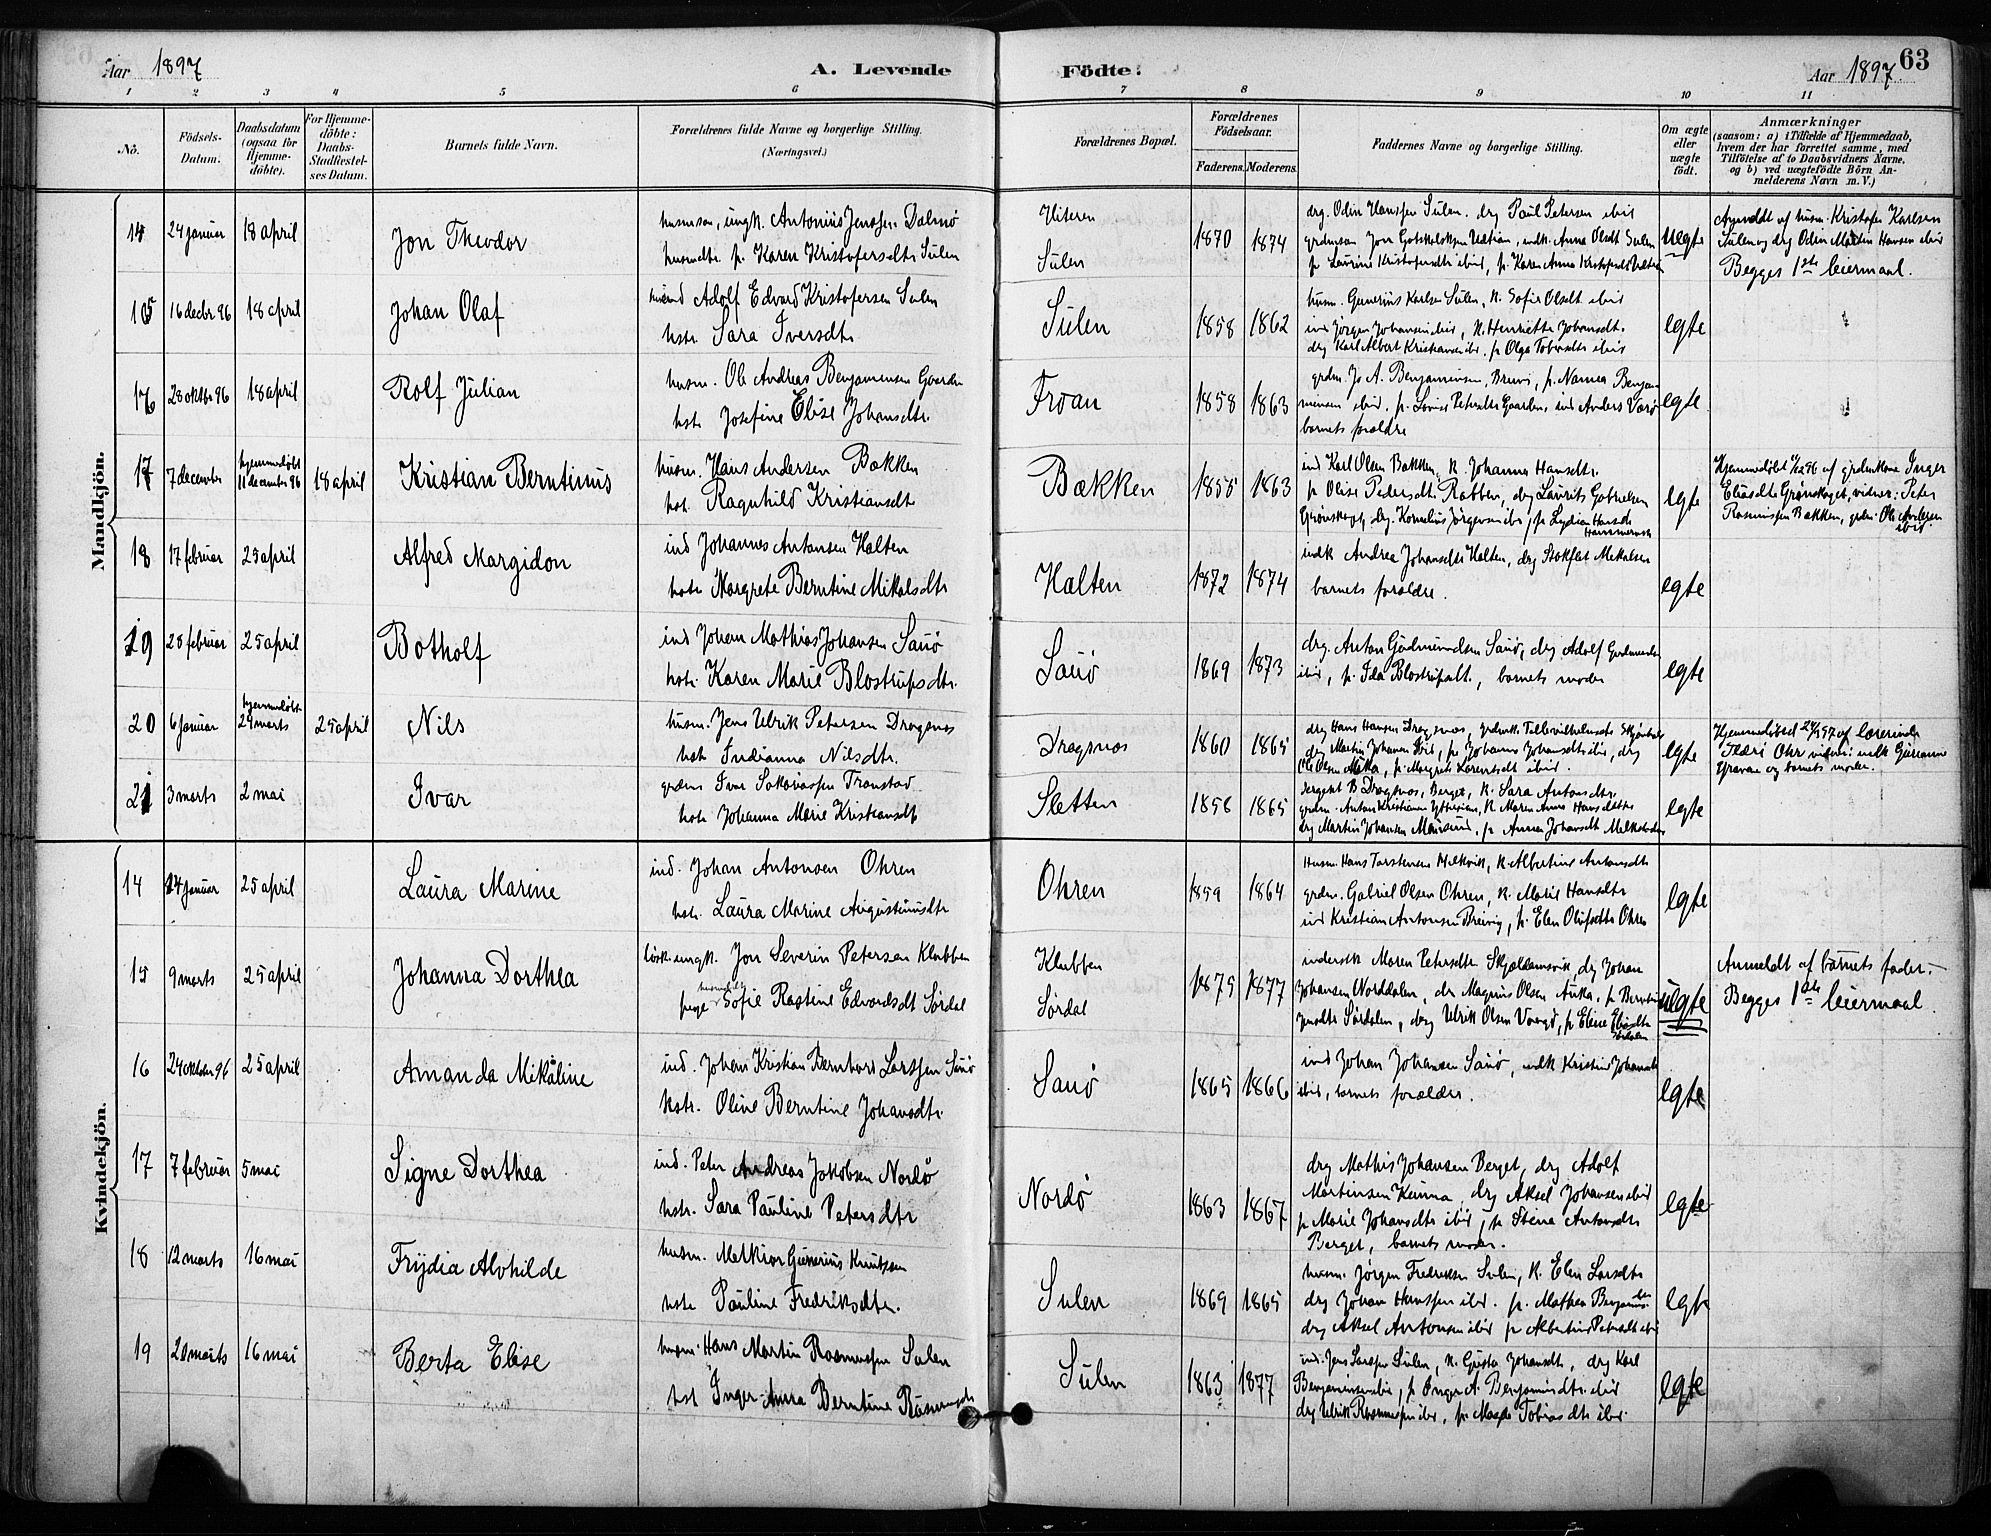 Aar 1897
A. Levende
Födte:
Aar 1897.
63
1 2 3 4 5 6 7 8 9 10 11
No.
Födsels-Datum.
Daabsdatum (ogsaa för Hjemme-döbte).
For Hjemme-döbte: Daabs-Stadfæstel-ses Datum.
Barnets fulde Navn.
Forældrenes fulde Navne og borgerlige Stilling.
(Næringsvei.)
Forældrenes Bopæl.
Forældrenes Födselsaar.
Faderens. Moderens.
Faddernes Navne og borgerlige Stilling.
Om ægte eller uægte födt.
Anmærkninger
(saasom: a) i Tilfælde af Hjemmedaab, hvem der har forrettet samme, med Tilföielse af to Daabsvidners Navne, og b) ved uægtefödte Börn An-melderens Navn m. V.)
Mandkjön.
14 24 januar 18 april Jon Theodor
husmsøn, ungk. Antonius Jenssen Dalmø
husmdtr. p. Karen Kristofersdtr Sulen
Hiteren
Sulen
1870 1874
drg. Odin Hanssen Sulen. drg Paul Petersen ibid
p Laurine Kristofersdtr ibid, p. Karen Anna
uegte
af husm. Kristofer Karlsen
Sulen og drg Odin Hansen ibid
Begges 1ste leiermaal.
15 16 decbr 96 18 april Johan Olaf
Adolf Edvard Kristofersen Sulen
hstr. Sara Iversdtr
Sulen
1858 1862
husm. Gunerius Karlsen Sulen, K. Sofie Olsdt ibid
ind Jørgen Johansen ibid, K. Henriette Johansdtr.
drg Karl Albert Kristiansen ibr. p Olga Tobiasdtr ibid
egte
16 28 oktbr 96 18 april Rolf Julian
husm. Ole Andreas Benjaminsen Gaarden
hstr Josefine Elise Johansdtr.
Froan
1858 1863
grdm. Jo A. Benjaminsen, p. Nanna Benja-
minsen ibid, p. Lovise Petersdtr Gaarden, ind Anders Varø
barnets forældre
egte
17 7 december hjemmedøbt 11 december 96 18 april Kristian Berntinus
husm. Hans Andersen Bakken
hst. Ragnhild Kristiansdtr
Bakken
1855 1863
ind Karl Olsen Bakken, K. Johanna Hansdtr.
p Olise Pedersdtr. Rabben, drg Laurits
drg. Kornelius Jørgensen ibr, p Lydia Hansdtr
Hammervik
egte
Hjemmedøbt 11/12 96 af grdmkone Inger
Eliasdtr Grønskaget, vidner: Peter
Rasmussen Bakken, grdm. Ole Andersen
ibid
18 17 februar 25 april Alfred Margidon
ind Johannes Antonsen Halten
hstr Margrete Berntine Mikalsdtr
Halten
1872 1874
indk Andrea Johansdtr Halten, drg Stokflet Mikalsen
barnets forældre.
egte
19 28 februar 25 april Botholf
ind Johan Mathias Johansen Sauø
hstr. Karen Marie Blostrupsdtr.
Sauø
1869 1873
drg. Anton Gudmundsen Sauø, drg. Adolf Gudmundsen
ibid, p. Ida Blostrupsdt., barnets moder
egte
20 6 januar hjemmedøbt 24 marts 25 april Nils
husm. Jens Ulrik Petersen Dragsnes
hstr Indianna Nilsdtr.
Dragsnes
1860 1865
drg Hans Hansen Dragsnes,
drg Martin Johansen ibid, p. Johanna Johansdtr ibr, drg
Ole Olsen p. Margrete Lorentsdt ibid.
egte
Hjemmedøbt 24/3 97 af lærerinde
Ohr vidner: indk
og barnets moder.
21 3 marts 2 mai Ivar
Ivar Sakariassen Transtad
hstr Johanna Marie Kristiansdtr
Sletten
1858 1865
Sergeant B Dragsnes, Berget, K. Sara Antonsdtr.
grdm. Anton Kristiansen K Maren Anna Hansdatter
drg Martin Johansen p. Anna Johansdt
egte
Kvindekjön.
14 14 januar 25 april Laura Marine
ind. Johan Antonsen Ohren
hstr. Laura Marine Augustinusdtr
Ohren
1859 1864
Husm. Hans Torstensen Melkvik, K. Albertine Antonsdtr
grdm. Gabriel Olsen Ohren, K. Marie Hansdtr
ind Kristian Antonsen Breivig, p. Elen Olufsdtr Ohren
egte
15 9 marts 25 april Johanna Dorthea
ungk. Jon Severin Petersen Klubben
pige Sofie Rastine Edvardsdt Sørdal
Klubben
Sørdal
1875 1877
Maren Petersdtr drg Johan
Johansen Norddalen, dr Magnus Olsen p Berntine
Jensdtr Sørdalen, drg Ulrik Olsen p Eline Eliasdtr
Sørdalen
uegte
Anmeldt af barnets fader. –
Begges 1ste leiermaal.
16 24 oktober 96 25 april Amanda Mikaline
ind. Johan Kristian Bernhard Larssen Sauø
hstr. Oline Berntine Johansdtr.
Sauø
1865 1866
ind Johan Johansen Sauø, indk Kristine Johansdtr
ibid, barnets forældre.
egte
17 7 februar 5 mai Signe Dorthea
ind. Peter Andreas Jakobsen Nordø
hstr. Sara Pauline Petersdtr
Nordø
1863 1867
drg Mathis Johansen Berget, drg Adolf
Martinsen Kunna, drg Aksel Johansen ibid
p Marie Johansdtr ibid, p Stina Antonsdtr
Berget, barnets moder.
egte
18 12 marts 16 mai Frydia Alvhilde
husm. Melkior Gunerius Knutsen
hstr Pauline Fredriksdtr.
Sulen
1869 1865
husm. Jørgen Fredriksen Sulen, K. Elen Larsdtr
drg Johan Hanssen ibid. p. Mathea Benjamins-
dtr
drg Aksel Antonsen ibid p Albertine Petersdt ibid
egte
19 20 marts 16 mai Berta Elise
husm. Hans Martin Rasmussen Sulen
hst Inger Anna Berntine Rasmusdtr
Sulen
1863 1877
ind. Jens Larssen Sulen, K. Gusta Johansdtr, drg Karl
Benjaminsen ibr, p Inger A. Benjaminsdtr ibid
drg Ulrik Rasmussen ibr, p. Magda Tobiasdtr ibid.
egte